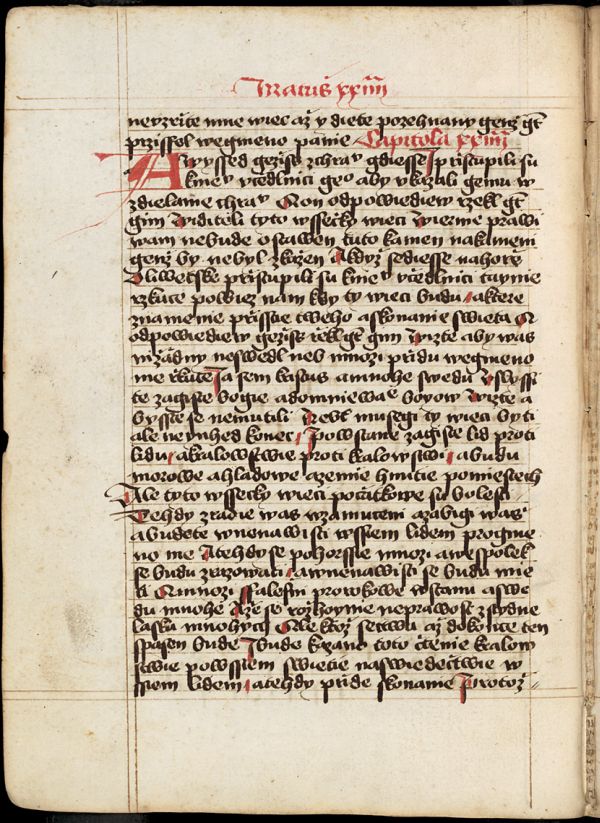 Matus xxiiii
neyzrite mne wiec až y diete pozehnany genž gt
przissol wegmeno panie Capitola xxiiii
A wyssed gežiss zchrav gdiesse Pristupili su
kniev včedlnici geo aby vkazali gemu w
zdielanie chrav Gon odpowiediew rzekl gt
gim Widiteli tyto wssecky wieci Wierne prawi
wam nebude ostawen tuto kamen nakameni
genž by nebyl zkažen A když sediesse nahore
Oliwetske pristupili su kniev včedlnici taynie
rzkuce powiez nam kdy ty wieci budu a ktere
znamenie prissie tweho askonanie swieta G
odpowiediew gežiss rekl gt gim Wizte aby was
nižadny neswedl neb mnozi pridu wegmeno
me rkuce Ja sem kristus amnohe swedu Vslyssi
te zagiste bogie adomniewae boyow Wizte a
bysste se nemutili Nebt musegi ty wieci byti
ale neynhed konec Powstane zagiste lid proti
lidu a kralowstwie proti kralowstwi a budu
morowe ahladowe azemie hnutie pomiestech
Ale tyto wssecky wieci počatkowe su bolesti
Tehdy zradie was wzamuceni azabigi was
abudete wnenawisti wssiem lidem progme
no me Atehdy se pohorssie mnozi awespolek
se budu zrazowati awnenawisti se budu mie
ti Gmnozi ffalessni prorokowe wstanu aswe
du mnohe Aže se rozhoynie neprawost zstydne
laska mnohych Ale ktož setrwa až dokonce ten
spasen bude Ibude kazano toto čtenie kralow
stwie powssiem swietie naswiedectwie w
ssiem lidem atehdy pride skonanie Protož